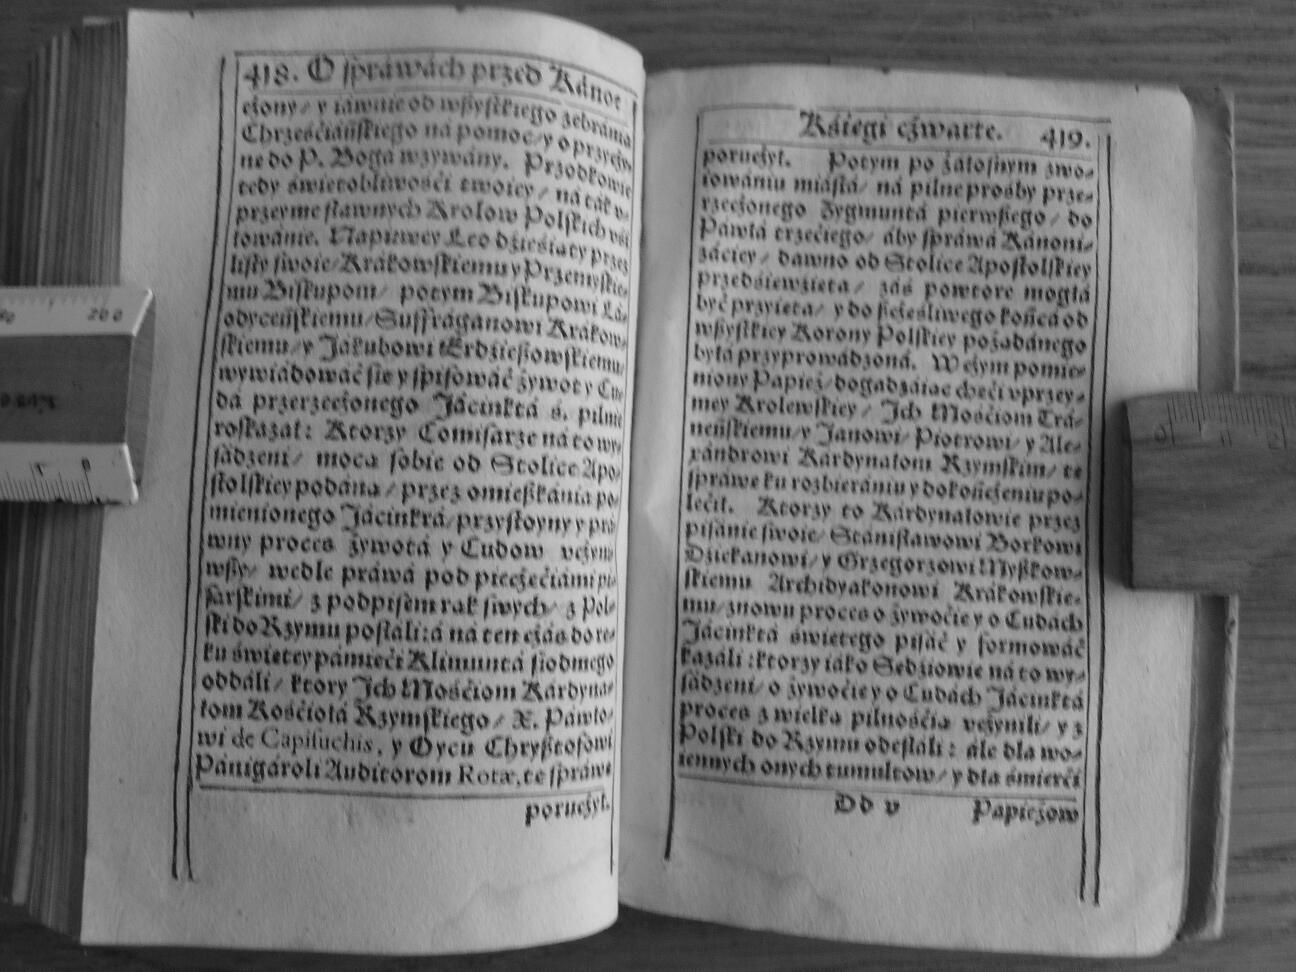 418. O spráwách przed Kánoe
czony/ y iáwnie od wszystkiego zebránia
Chrześćiáńskiego ná pomoc/ y o przyczy-
ne do P. Bogá wzywány. Przodkowie
tedy świetobliwośći twoiey/ ná ták v-
przeyme sławnych Krolow Polskich vśi
łowánie. Napirwey Leo dźieśiąty przez
listy swoie/ Krákowskiemu y Przemyskie-
mu Biskupom/ potym Biskupowi Lá-
odyceńskiemu/ Suffráganowi Krákow-
skiemu/ y Jakubowi Erdzieszowskiemu/
wywiádowáć sie y spisowáć żywot y Cu-
dá przerzeczonego Jácinktá ś. pilnie
roskazał: Ktorzy Comisarze ná to wy-
sádzeni/ moca sobie od Stolice Apo-
stolskiey podána/ przez omieszkánia po-
mienionego Jácinktá/ przystoyny y prá
wny proces żywotá y Cudow vczyni-
wszy/ wedle práwá pod pieczęćiámi pi-
sárskimi/ z podpisem rak swych/ z Pol-
ski do Rzymu posłáli: á ná ten czás do re-
ku świetey pámieći Klimuntá siodmego
oddáli/ ktory Jch Mośćiom Kárdyná-
łom Kośćiołá Rzymskiego/ X. Páwło-
wi de Capisuchis, y Oycu Chrysztofowi
Pánigároli Auditorom Rotæ, te spráwe
poruczył.
Ksiegi czwarte. 419.
poruczył. Potym po żáłosnym zwo-
iowániu miástá/ ná pilne prośby prze-
rzeczonego Zygmuntá pierwszego/ do
Páwłá trzećiego/ áby spráwá Kánoni-
záciey/ dawno od Stolice Apostolskiey
przedśiewźieta/ zás powtore mogłá
być przyieta/ y do szcześliwego końca od
wszystkiey Korony Polskiey pożadánego
byłá przyprowádzoná. W czym pomie-
niony Papież/ dogadzáiac chęći vprzey-
mey Krolewskiey/ Jch Mośćiom Trá-
neńskiemu/ y Janowi/ Piotrowi/ y Ale-
xándrowi Kárdynałom Rzymskim/ te
spráwe ku rozbierániu y dokończeniu po-
lećił. Ktorzy to Kárdynałowie przez
pisánie swoie/ Stánisławowi Borkowi
Dźiekanowi/ y Grzegorzowi Myszkow-
skiemu Archidyakonowi Krákowskie-
mu/ znowu proces o żywoćie y o Cudách
Jácinktá świetego pisáć y formowáć
kazáli: ktorzy iáko Sedźiowie ná to wy-
sádzeni/ o żywoćie y o Cudách Jácinktá
proces z wielka pilnośćia vczynili/ y z
Polski do Rzymu odesłáli: ále dla wo-
iennych onych tumultow/ y dla śmierći
Dd v Papieżow
200